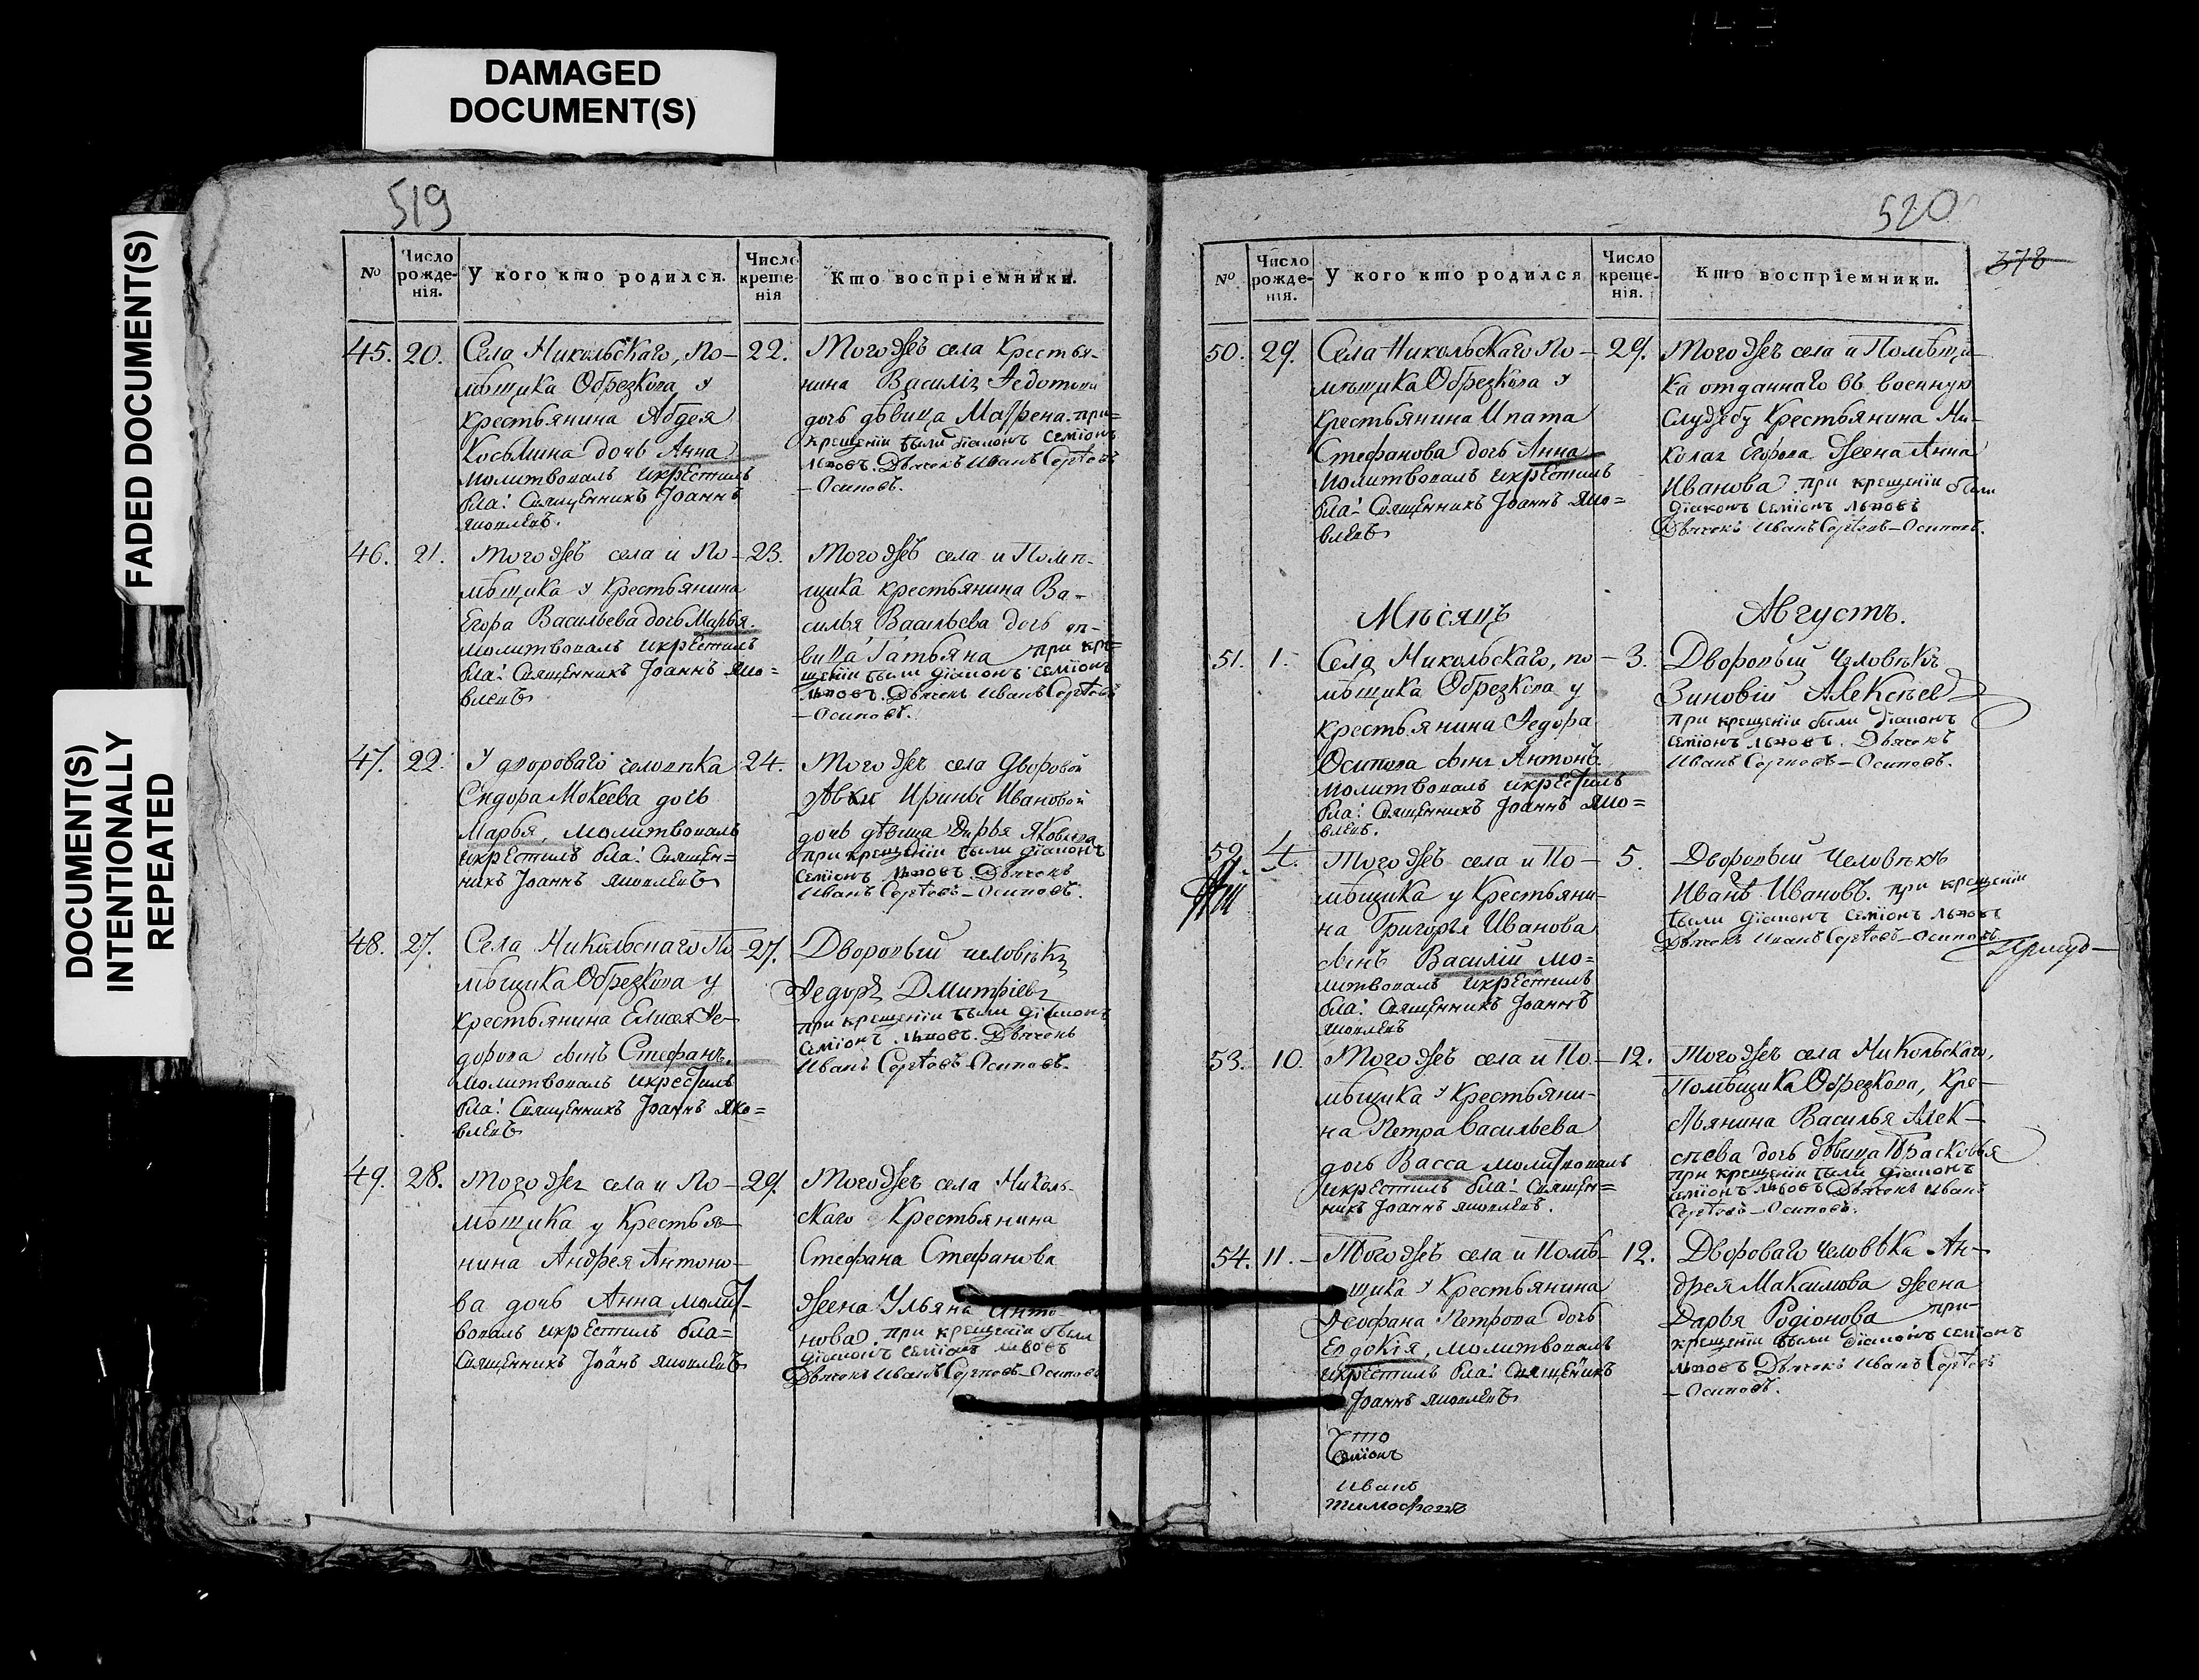 DAMAGED
DOCUMENT(S)
FADED DOCUMENT(S)
DOCUMENT(S)
INTENTIONALLY
REPEATED
519
№ Число рожде-нія. У кого кто родился. Число креще-нія Кто воспріемники.
45. 20. Села Никольскаго, по-
мѣщика Обрезкова у
крестьянина Авдея
Косьмина дочь Анна
молитвовалъ и крестилъ
бла: Священникъ Іоаннъ
Яковлевъ.
22. Того же села крестья-
нина Василія Федотова
дочь дѣвица Матрена. при
крещеніи были діаконъ Семіонъ
Львовъ. Дьячекъ Иванъ Сергѣевъ
– Осиповъ.
46. 21. Того жъ села и по-
мѣщика у крестьянина
Егора Васильева дочь Марья.
молитвовалъ и крестилъ
бла: Священникъ Іоаннъ Яко=
влевъ
23. Того жъ села и Помѣ-
щика крестьянина Ва-
силья Васильева дочь дѣ-
вица Татьяна при кре=
щеніи были діаконъ Семіонъ
Львовъ. Дьячекъ Иванъ Сергѣевъ
– Осиповъ.
47. 22. У двороваго человѣка
Сидора Мокеева дочь
Марья, молитвовалъ
и крестилъ бла: Священ=
никъ Іоаннъ Яковлевъ
24. Того жъ села дворовой
дѣвки Ирины Ивановой
дочь дѣвица Дарья Яковлева
при крещеніи были діаконъ
Семіонъ Львовъ. Дьячекъ
Иванъ Сергѣевъ – Осиповъ.
48. 27. Села Никольскаго По-
мѣщика Обрезкова у
крестьянина Елисея Фе-
дорова сынъ Стефанъ.
молитвовалъ и крестилъ
бла: Священникъ Іоаннъ Яко=
влевъ
27. Дворовый человѣкъ
Федоръ Дмитріевъ
при крещеніи были діаконъ
Семіонъ Львовъ. Дьячекъ
Иванъ Сергѣевъ – Осиповъ.
49. 28. Того жъ села и По-
мѣщика у крестья-
нина Андрея Антоно-
ва дочь Анна молит-
вовалъ и крестилъ бла=
Священникъ Іоанъ Яковлевъ
29. Того жъ села Николь-
скаго Крестьянина
Стефана Стефанова
жена Ульяна Анто
нова. при крещеніи были
діаконъ Семіонъ Львовъ
Дьячекъ Иванъ Сергѣевъ – Осиповъ
520
378
№ Число рожде-нія. У кого кто родился Число креще-нія. Кто воспріемники.
50. 29. Села Никольскаго По-
мѣщика Обрезкова у
крестьянина Ипата
Стефанова дочь Анна
молитвовалъ и крестилъ
бла: Священникъ Іоаннъ Яко=
влевъ
29. Того жъ села и Помѣщи-
ка отданнаго въ военную
службу крестьянина Ни-
колая Егорова жена Анна
Иванова при крещеніи были
діаконъ Семіонъ Львовъ
Дьячекъ Иванъ Сергѣевъ – Осиповъ.
Мѣсяцъ Августъ.
51. 1. Села Никольскаго, по-
мѣщика Обрезкова у
крестьянина Федора
Осипова сынъ Антонъ.
молитвовалъ и крестилъ
бла: Священникъ Іоаннъ Яко=
влевъ.
3. Дворовый Человѣкъ
Зиновій Алексѣев
при крещеніи были діаконъ
Семіонъ Львовъ. Дьячекъ
Иванъ Сергѣевъ – Осиповъ.
52. 4. Того жъ села и По-
мѣщика у крестьяни-
на Григорья Иванова
сынъ Василій мо=
литвовалъ и крестилъ
бла: Священникъ Іоаннъ
Яковлевъ
5. Дворовый Человѣкъ
Иванъ Ивановъ. при крещеніи
были діаконъ Семіонъ Львовъ
Дьячекъ Иванъ Сергѣевъ – Осиповъ
53. 10. Того жъ села и По-
мѣщика у крестьяни-
на Петра Васильева
дочь Васса молитвовалъ
и крестилъ бла: Священ=
никъ Іоаннъ Яковлевъ.
12. Того жъ села Никольскаго,
Помѣщика Обрезкова, кре-
стьянина Василья Алек-
сѣева дочь дѣвица Прасковья
при крещеніи были діаконъ
Семіонъ Львовъ Дьячекъ Иванъ
Сергѣевъ – Осиповъ.
54. 11. Того жъ села и Помѣ-
щика у крестьянина
Феофана Петрова дочь
Евдокія, молитвовалъ
и крестилъ бла: Священникъ
Іоаннъ Яковлевъ
12. Двороваго человѣка Ан-
дрея Максимова жена
Дарья Родіонова при-
крещеніи были діаконъ Семіонъ
Львовъ Дьячекъ Иванъ Сергѣевъ
– Осиповъ.
Что
Семіонъ
Иванъ